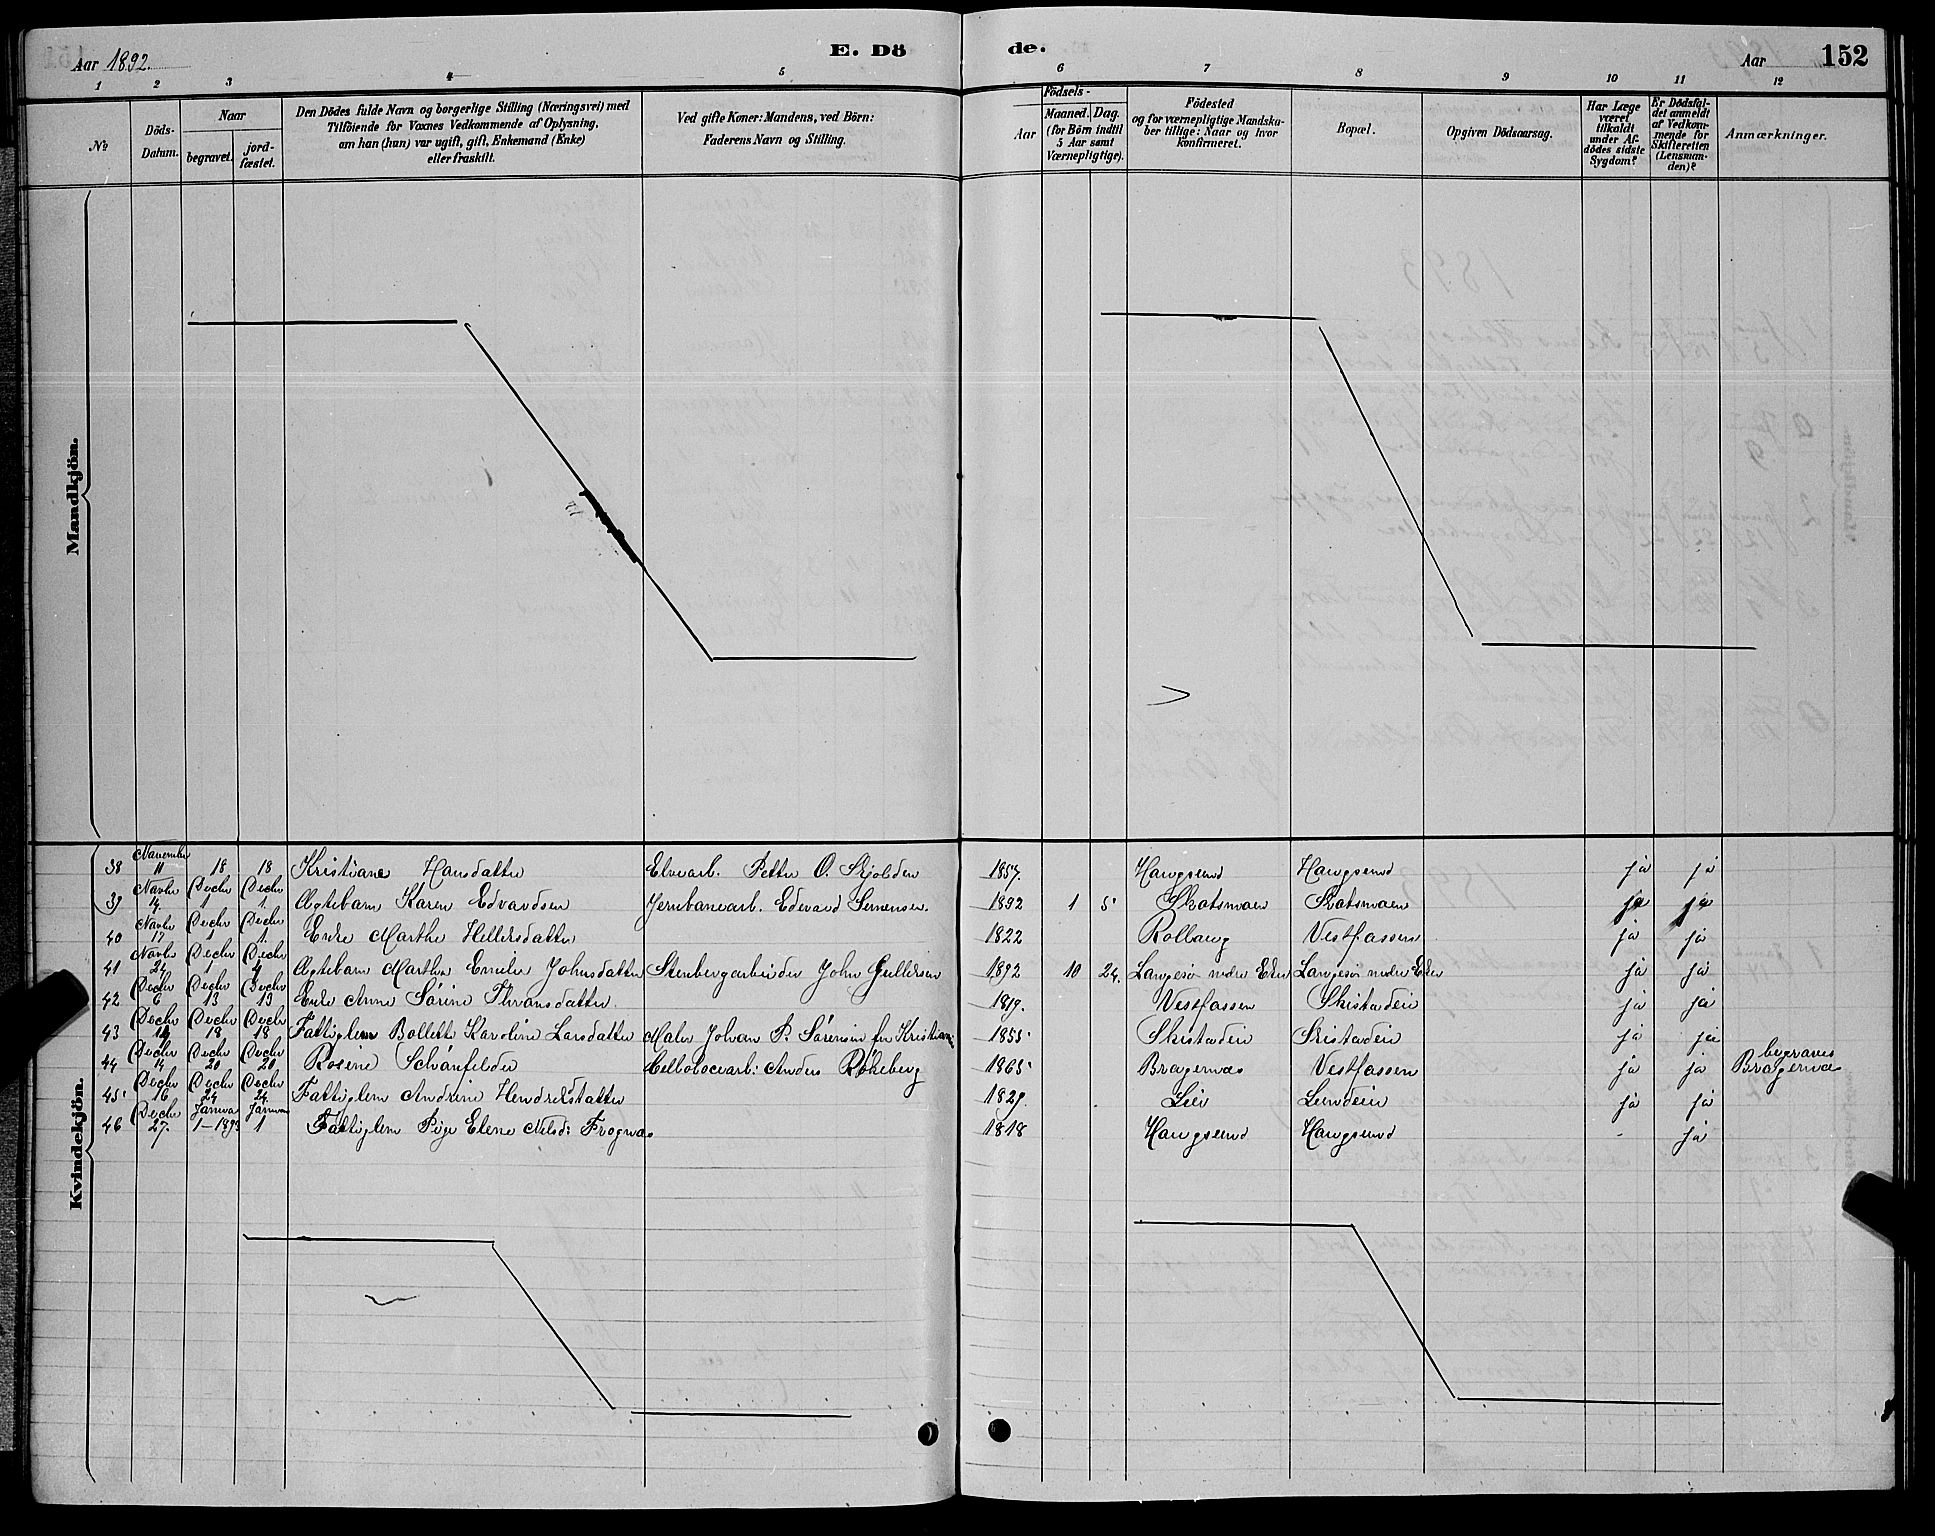 Aar 1892.
E. Dö
de.
Aar
152
1 2 3 4 5
6 7 8 9 10 11 12
№
Döds-
Datum.
Naar
begravet.
jord-
fæstet.
Den Dödes fulde Navn og borgerlige Stilling (Næringsvei) med
Tilföiende for Voxnes Vedkommende af Oplysning,
om han (hun) var ugift, gift, Enkemand (Enke)
eller fraskilt.
Ved gifte Koner: Mandens, ved Börn:
Faderens Navn og Stilling.
Födsels-
Aar
Maaned.
Dag.
(for Börn indtil
5 Aar samt
Værnepligtige).
Födested
og for værnepligtige Mandska-
ber tillige: Naar og hvor
konfirmeret.
Bopæl.
Opgiven Dödsaarsag.
Har Læge
været
tilkaldt
under Af-
dödes sidste
Sygdom?
Er Dödsfal-
det anmeldt
af Vedkom-
mende for
Skifteretten
(Lensman-
den)?
Anmærkninger.
Mandkjön.
Kvindekjön.
38 November 11 18 18 Kristiane Hansdatter Elvearb. Petter O. 1857. Hougsund Hougsund ja ja
39 Novbr 14. Decbr 1 Decbr 1. Ægtebarn Karen Edvardsen Jernbanearb. Edvard 1892 1 5 Skotsmoen Skotsmoen ja ja
40 Novbr 17 Decbr 1 Decbr 1. Enke Marthe 1822 Vestfossen ja ja
41 Novbr 24 Decbr 1 Decbr 4 Ægtebarn Marthe Emilie Johnsdatter Stenbergarbeider John Gulliksen 1892 10 24. nedre Eker nedre Eker ja ja
42 Decbr 6 Decbr 13 Decbr 13 Enke Anne Sørine 1819. Vestfossen ja ja
43 Decbr Decbr 18 Decbr 18 Fattiglem Bollette Karoline Larsdatter Maler Johan P. Sørensen 1855 ja ja
44 Decbr 14 Decbr 20 Decbr 20 Rosine Schönfelder Anders Røkeberg 1865 Bragernæs Vestfossen ja ja begraves Bragernæs
45 Decbr 16 Decbr 24 Decbr 24. Fattiglem Andrine 1829 Lier ja ja
46 Decbr 27. Januar 1-1893 Januar 1 Fattiglem Pige Elene Nilsd: Frognæs 1818 Hougsund Hougsund - ja